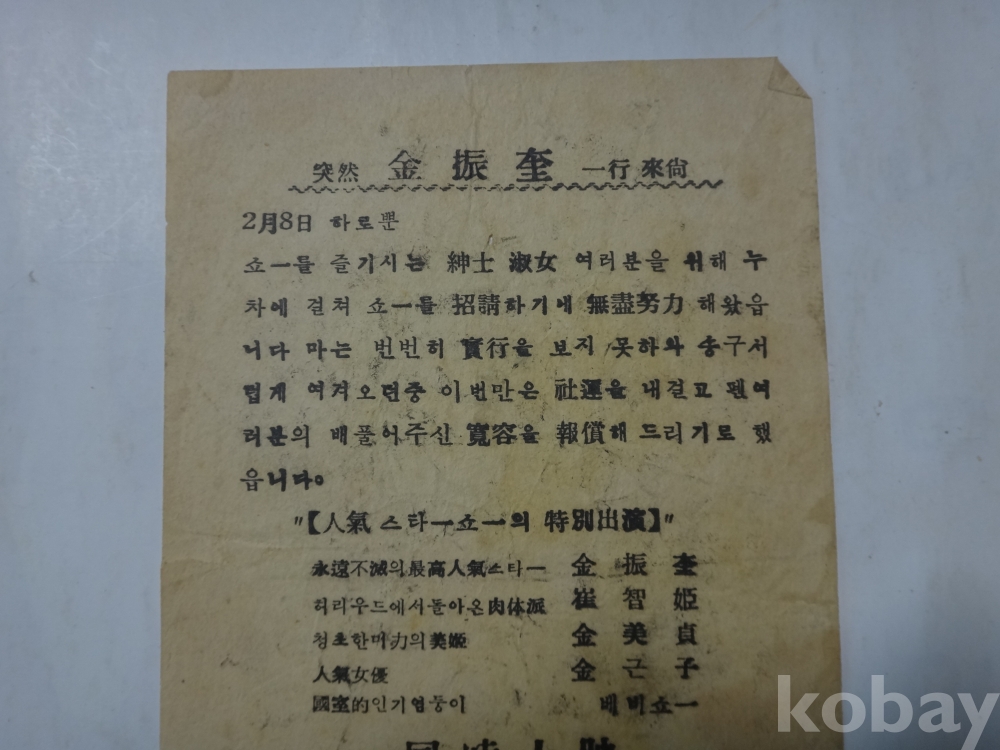 突然 金振奎 一行 來尙
2月8日 하로뿐
쇼ー를 즐기시는 紳士 淑女 여러분을 위해 누
차에 걸쳐 쇼ー를 招請하기에 無盡努力 해왔읍
니다 마는 번번히 實行을 보지 못하와 송구서
럽게 여겨오던중 이번만은 社運을 내걸고 팬여
러분의 배풀어주신 寬容을 報償해 드리기로 했
읍니다。
"【人氣 스타ー쇼ー의 特別出演】"
永遠不滅의 最高人氣스타ー 金振奎
허리우드에서돌아온肉体派 崔智姬
청초한매力의美姬 金美貞
人氣女優 金근子
國宝的인기염둥이 베비쇼ー
kobay